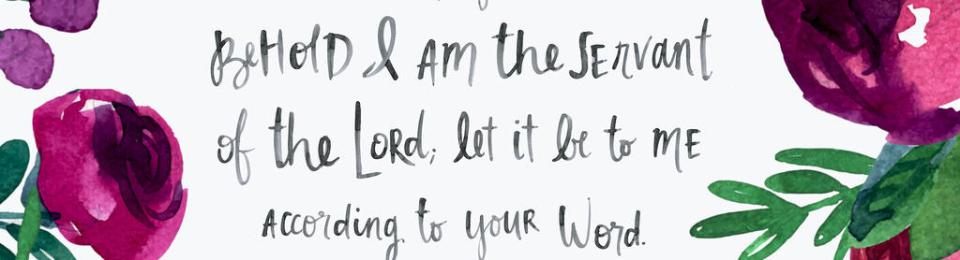 BeHolD I AM the SErvant
of the LORd; let it be to ME
ACCording to YOUR Word.